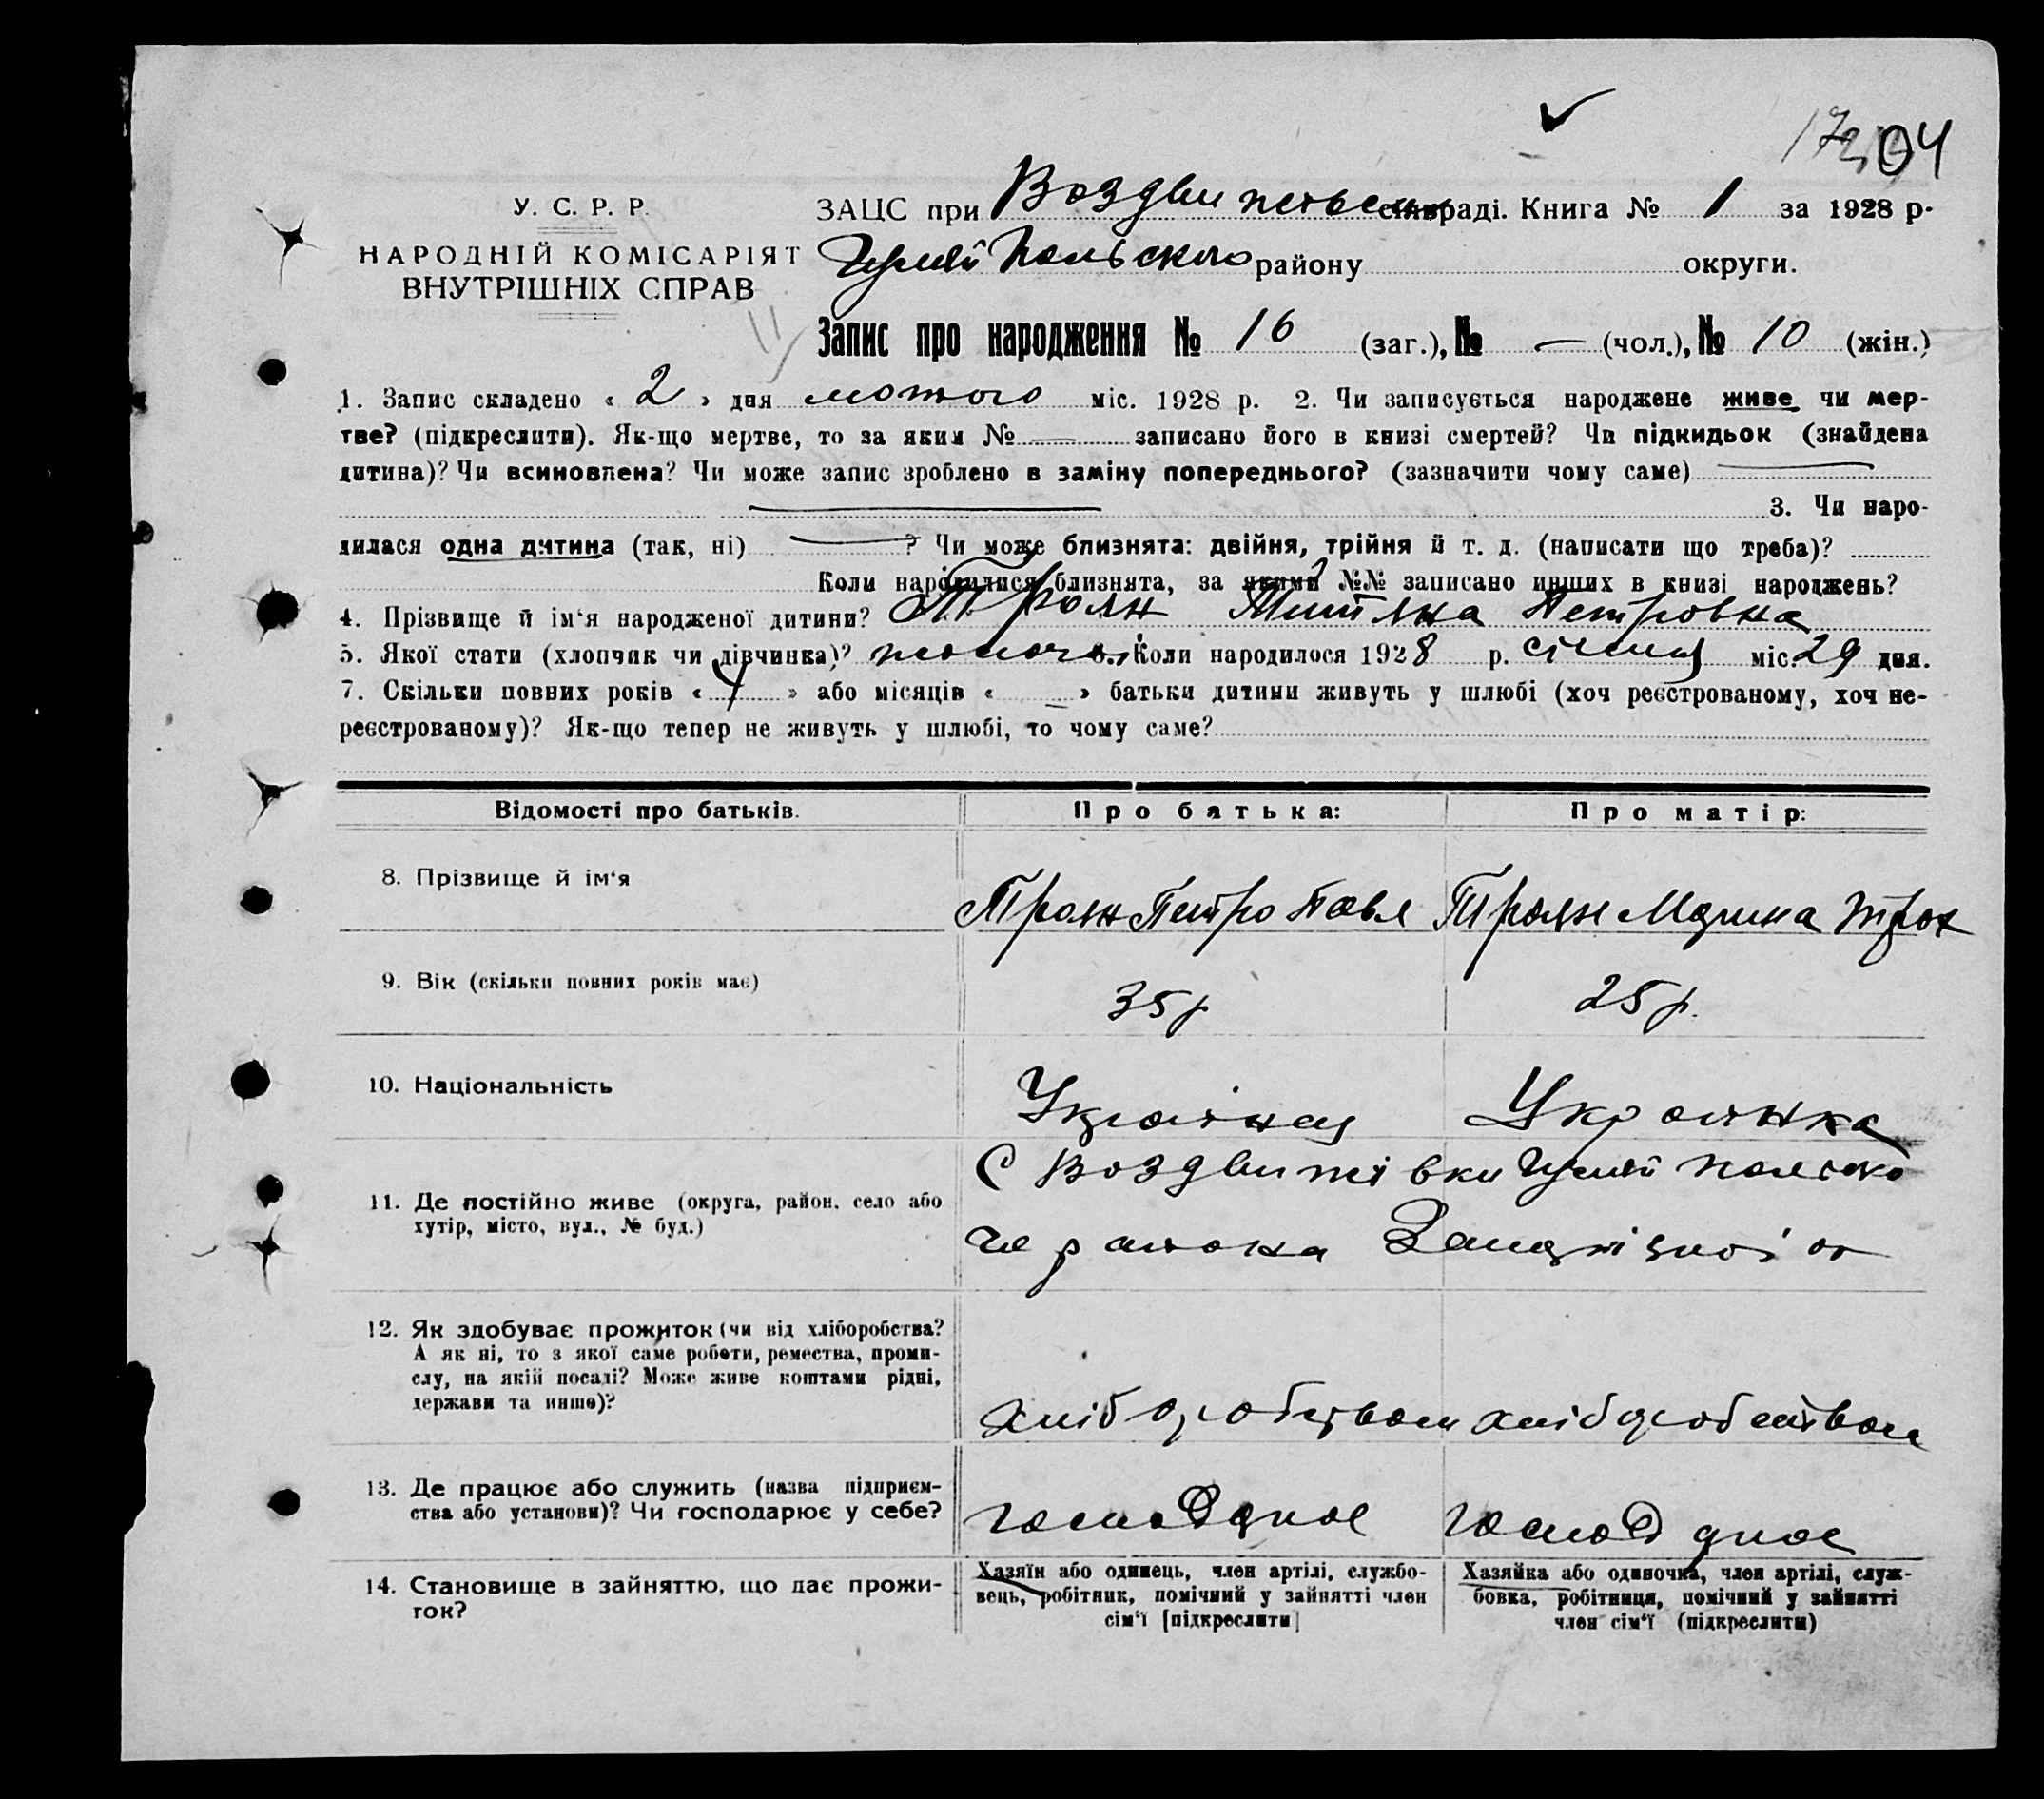 304
У. С. Р. Р.
НАРОДНІЙ КОМІСАРІЯТ
ВНУТРІШНІХ СПРАВ
ЗАЦС при сільраді. Книга № 1 за 1928 р.
району округи.
Запис про народження № 16 (заг.), № — (чол.), № 10 (жін.)
1. Запис складено « 2 » дня лютого міс. 1928 р. 2. Чи записується народжене живе чи мер-
тве? (підкреслити). Як-що мертве, то за яким № — записано його в книзі смертей? Чи підкидьок (знайдена
дитина)? Чи всиновлена? Чи може запис зроблено в заміну попереднього? (зазначити чому саме) —
— 3. Чи наро-
дилася одна дитина (так, ні) — ? Чи може близнята: двійня, трійня й т. д. (написати що треба)?
Коли народилися близнята, за якими №№ записано инших в книзі народжень?
4. Прізвище й ім'я народженої дитини? Троян Петровна
5. Якої стати (хлопчик чи дівчинка)? 6. Коли народилося 1928 р. січня міс. 29 дня.
7. Скільки повних років « » або місяців « — » батьки дитини живуть у шлюбі (хоч реєстрованому, хоч не-
реєстрованому)? Як-що тепер не живуть у шлюбі, то чому саме?
Відомості про батьків. Про батька: Про матір:
8. Прізвище й ім'я
Троян Петро Павл Троян
9. Вік (скільки повних років має)
35 р 25 р.
10. Національність
Українец Украинка
С Воздвижівки
11. Де постійно живе (округа, район, село або
хутір, місто, вул., № буд.)
района
12. Як здобуває прожиток (чи від хліборобства?
А як ні, то з якої саме роботи, ремества, проми-
слу, на якій посаді? Може живе коштами рідні,
держави та инше)?
хліборобством хліборобством
13. Де працює або служить (назва підприєм-
ства або установи)? Чи господарює у себе?
14. Становище в зайняттю, що дає прожи-
ток?
Хазяїн або одинець, член артілі, службо-
вець, робітник, помічний у зайнятті член
сім'ї [підкреслити]
Хазяйка або одиночка, член артілі, служ-
бовка, робітниця, помічний у зайнятті
член сім'ї (підкреслити)